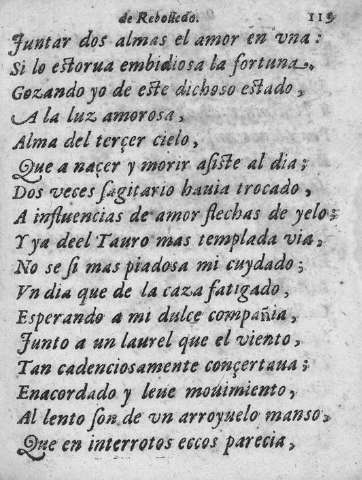 de Reboůedo. 115
Juntar dos almas el amor en vna:
Si lo estorua embidiosa la fortuna.
Gozando yo de este dichoso estado,
A la luz amorosa,
Alma del terçer cielo,
Que a naçer y morir asiste al dia;
Dos veçes sagitario hauia trocado,
A influencias de amor flechas de yelo;
Y ya deel Tauro mas templada via,
No se si mas piadosa mi cuydado;
Vn dia que de la caza fatigado,
Esperando a mi dulce compañia,
Junto a vn laurel que el viento,
Tan cadenciosamente conçertaua;
Enacordado y leue mouimiento,
Al lento son de vn arroyuelo manso,
Que en interrotos eccos parecia,